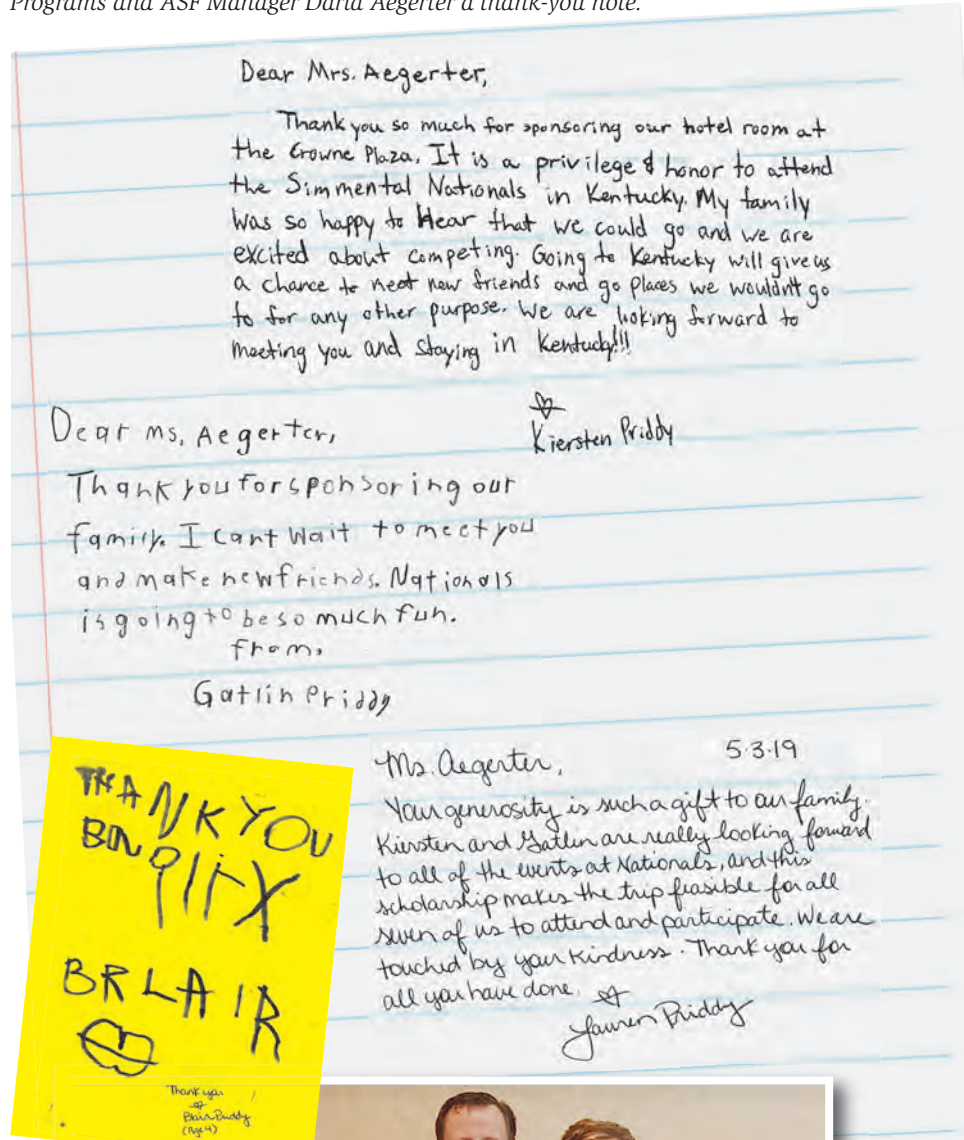 Programs and ASF Manager Darla Aegerter a thank-you note.
Dear Mrs. Aegerter,
Thank you so much for sponsoring our hotel room at
the Crowne Plaza. It is a privilege & honor to attend
the Simmental Nationals in Kentucky. My family
was so happy to Hear that we could go and we are
excited about competing. Going to Kentucky will give us
a chance to meet new friends and go places we wouldn't go
to for any other purpose. We are looking forward to
meeting you and staying in Kentucky!!!
Kiersten Priddy
Dear ms. Aegerter,
Thank you for sponsoring our
family. I cant wait to meet you
and make new friends. Nationals
is going to be so much fun.
from,
Gatlin Priddy
THANK YOU
BRLAIR
Thank you
Blair Priddy
(Age 4)
5.3.19
Ms. Aegerter,
Your generosity is such a gift to our family.
Kiersten and Gatlin are really looking forward
to all of the events at Nationals, and this
scholarship makes the trip feasible for all
seven of us to attend and participate. We are
touched by your kindness. Thank you for
all you have done.
Lauren Priddy